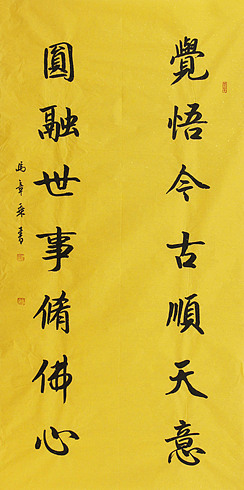 覺悟今古順天意
圓融世事脩佛心
馬章乘書